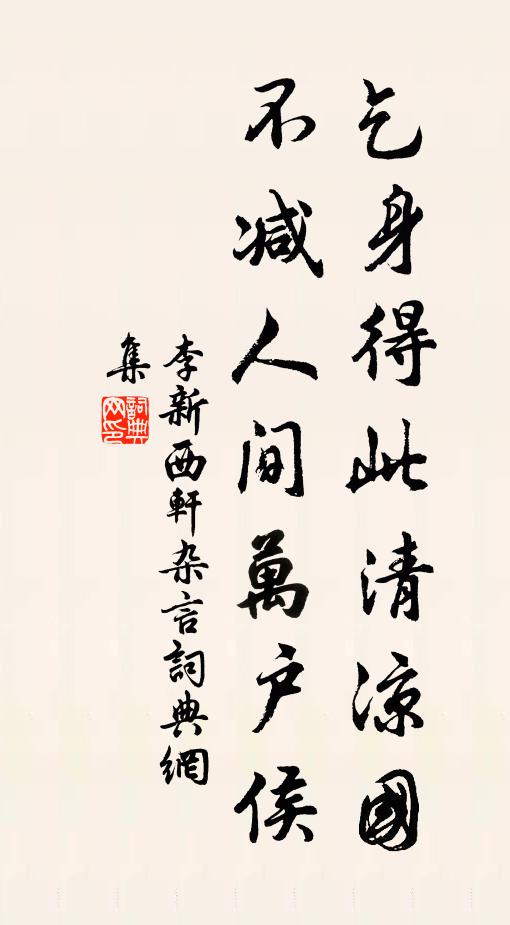 乞身得此清凉國
不减人间萬户侯
李新西軒杂言詞典網
集
詞典网印